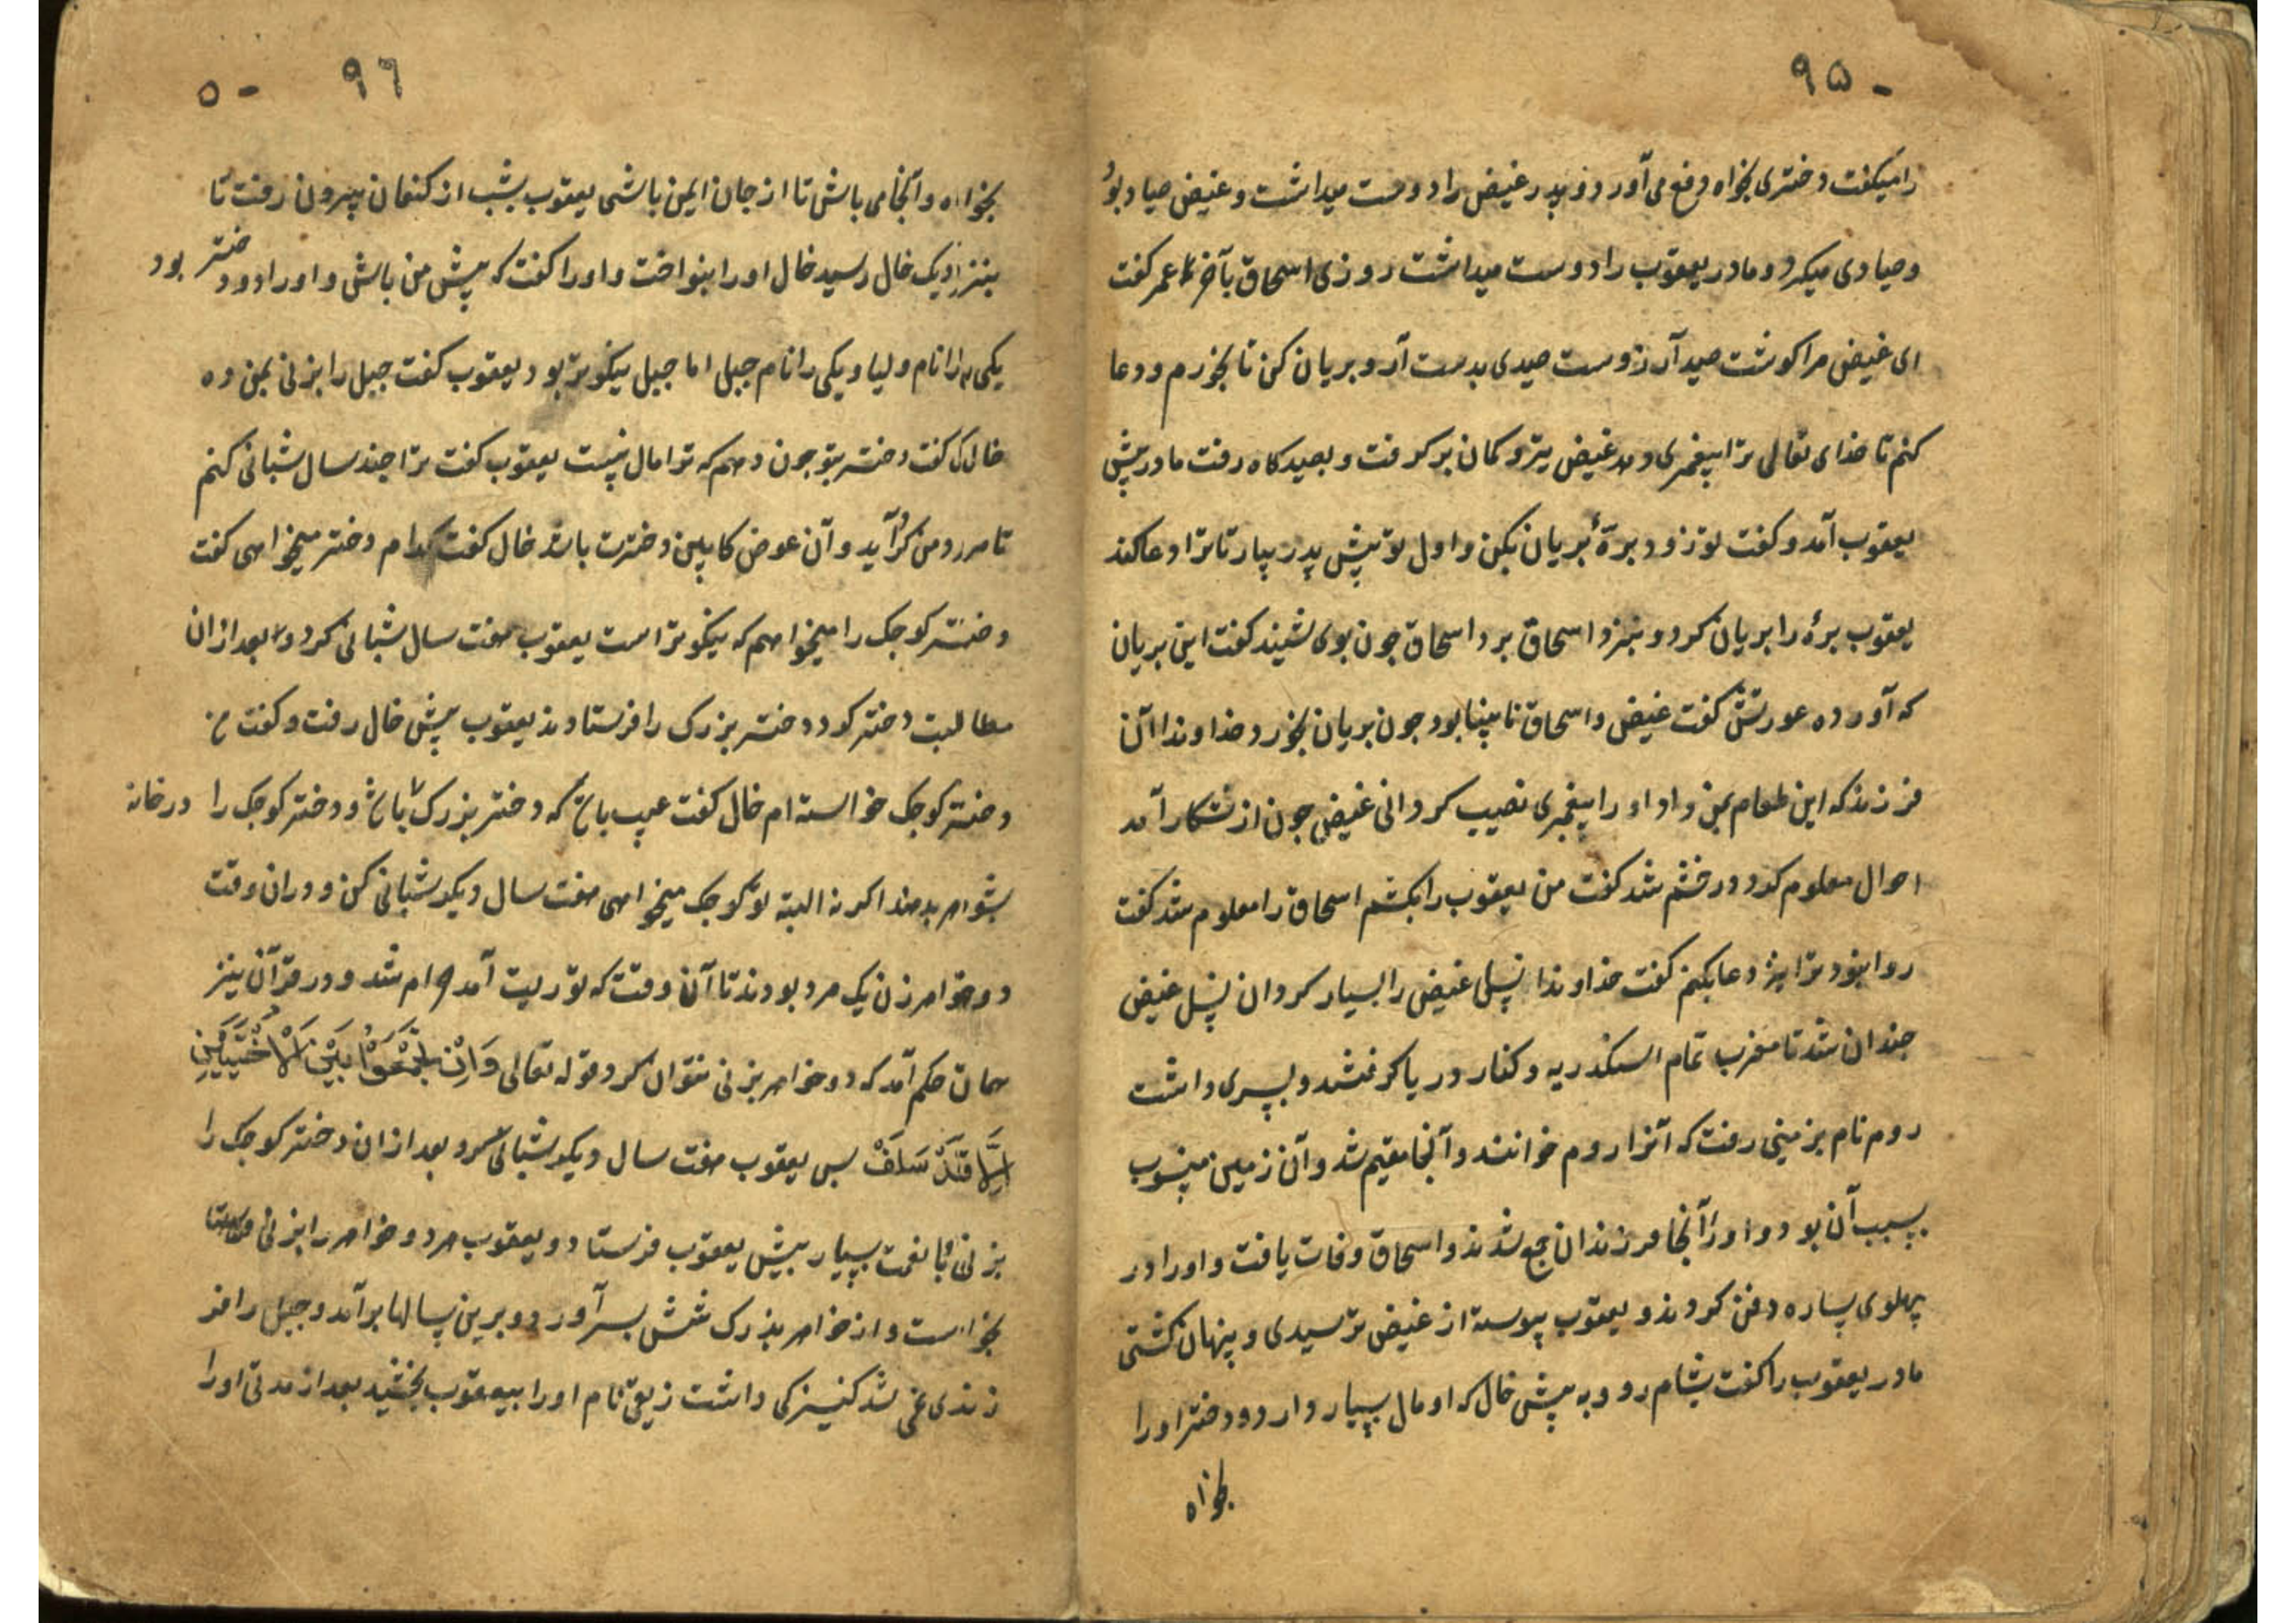 ۹۵ -
را میکفت دختری بخواه دفع می آورد و پدر غیض را دوست میداشت و غیض صیاد بود
و صیادی میکرد و مادر یعقوب را دوست میداشت روزی اسحاق بآخر عمر کفت
ای غیض مرا کوشت صید آرزوست صیدی بدست آر و بریان کن تا بخورم و دعا
کنم تا خدای تعالی ترا پیغمبری دهد غیض تیر و کمان بر کرفت و بصیدکاه رفت مادر پیش
یعقوب آمد و کفت تو زود برهٔ بریان بکن و اول تو پیش پدر بیار تا ترا دعا کند
یعقوب برهٔ را بریان کرد و بنزد اسحاق برد اسحاق جون بوی بشنید کفت این بریان
که آورده عورتش کفت غیض و اسحاق نابینا بود جون بریان بخورد خداوندا آن
فرزند که این طعام بمن داد او را پیغمبری نصیب کردانی غیض جون از شکار آمد
احوال معلوم کرد در خشم شد کفت من یعقوب را بکشم اسحاق را معلوم شد کفت
روا نبود ترا نیز دعا بکنم کفت خداوندا نسل غیض را بسیار کردان نسل غیض
جندان شد تا مغرب تمام اسکندریه و کنار دریا کرفتند و پسری داشت
روم نام بزمینی رفت که آنرا روم خوانند و آنجا مقیم شد و آن زمین منسوب
بسبب آن بود و او را آنجا فرزندان جمع شدند و اسحاق وفات یافت و او را در
پهلوی ساره دفن کردند و یعقوب پیوسته از غیض ترسیدی و پنهان کشتی
مادر یعقوب را کفت بشام رو و به پیش خال که او مال بسیار دارد و دختر او را
بخواه
۹۶ - ۵
بخواه و آنجا می باش تا از جان ایمن باشی یعقوب بشب از کنعان بیرون رفت تا
بنزدیک خال رسید خال او را بنواخت و او را کفت که پیش من باش و او را دو دختر بود
یکی را نام ولیا و یکی را نام جبل اما جبل نیکوتر بود یعقوب کفت جبل را بزنی بمن ده
خال کفت دختر بتو جون دهم که ترا مال نیست یعقوب کفت ترا جند سال شبانی کنم
تا مزد من کرد آید و آن عوض کابین دخترت باشد خال کفت کدام دختر میخواهی کفت
دختر کوجک را میخواهم که نیکوتر است یعقوب هفت سال شبانی کرد و بعد از ان
مطالبت دختر کرد دختر بزرک را فرستادند یعقوب پیش خال رفت و کفت من
دختر کوجک خواسته ام خال کفت عیب باشد که دختر بزرک باشد و دختر کوجک را در خانه
بشوهر بدهند اکر نه البته تو کوجک میخواهی هفت سال دیکر شبانی کن و دران وقت
دو خواهر زن یک مرد بودند تا آن وقت که توریت آمد حرام شد و در قرآن نیز
همان حکم آمد که دو خواهر بزنی نتوان کرد قوله تعالی وَاَنْ تَجْمَعُوْا بَیْنَ الْاُخْتَیَیْنِ
اِلَّا مَا قَدْ سَلَفْ پس یعقوب هفت سال دیکر شبانی کرد و بعد از ان دختر کوجک را
بزنی با نعمت بسیار پیش یعقوب فرستاد و یعقوب هر دو خواهر را بزنی
بخواست و از خواهر بزرک شش پسر آورد و برین سالها برآمد و جبل را فر
زندی نمی شد کنیزکی داشت زیق نام او را بیعقوب بخشید بعد از مدتی او را